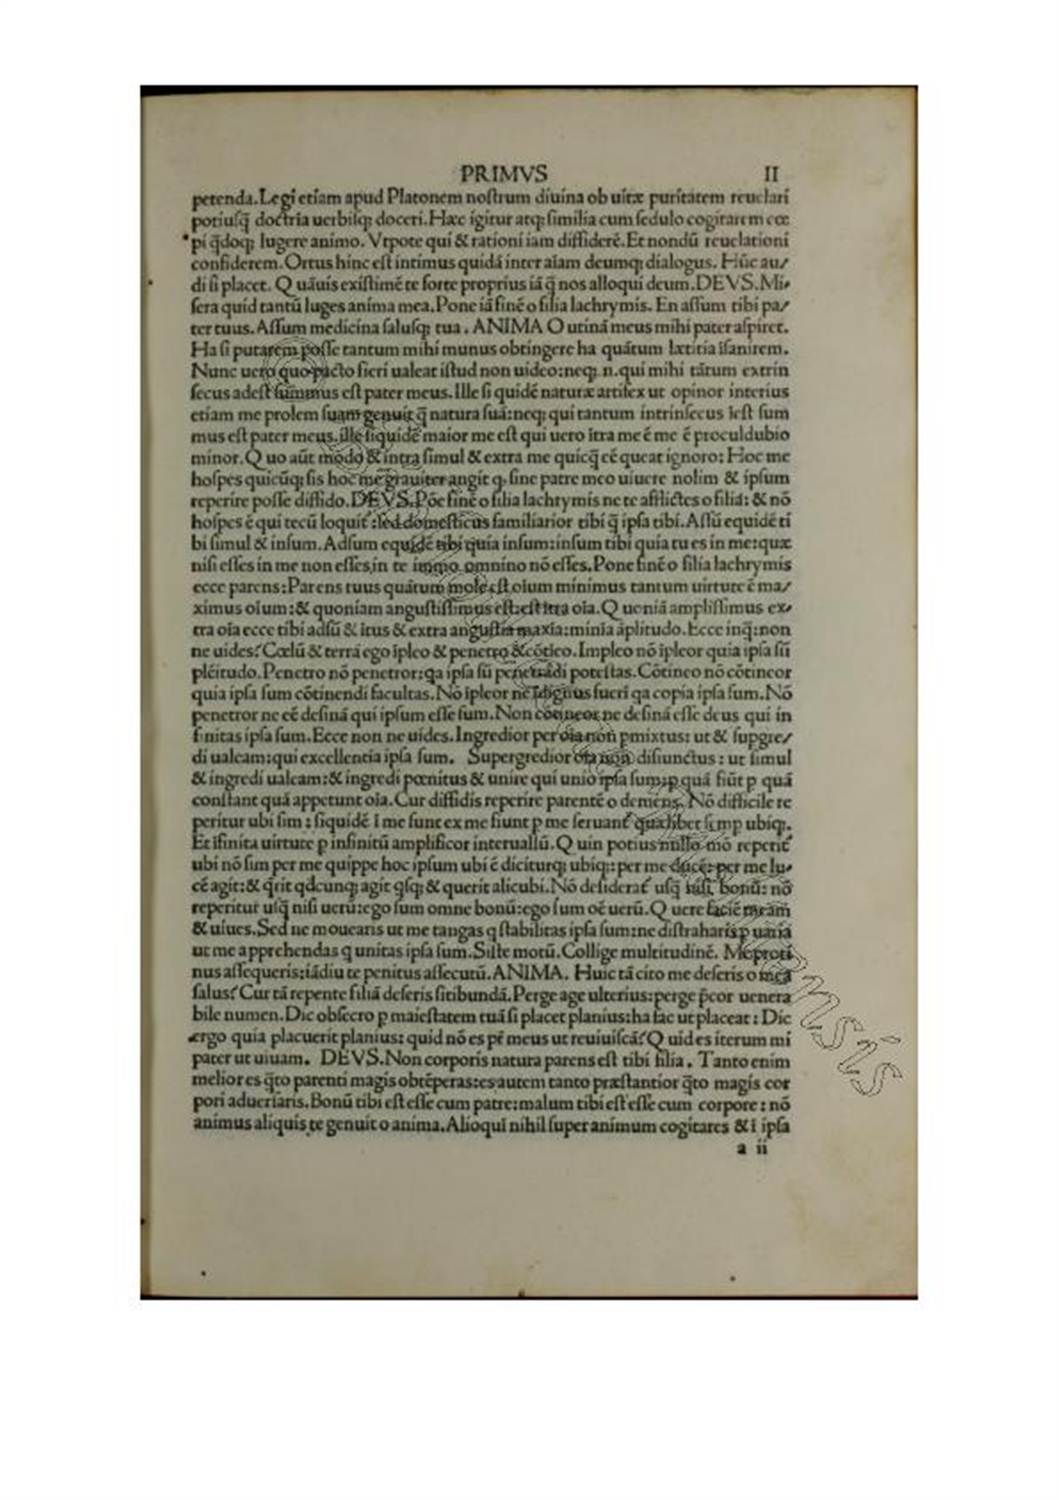 PRIMVS II
petenda.Legi etiam apud Platonem noſtrum diuina ob uitæ puritatem reuelari
potiuſq̄ doctria uerbiſq; doceri.Hæc igitur atq; ſimilia cum ſedulo cogitarem cœ
pi q̄doq; lugere animo.Vtpote qui & rationi iam diffiderē.Et nondū reuelationi
confiderem.Ortus hinc eſt intimus quidā inter aīam deumq; dialogus. Hūc au/
di ſi placet. Q uāuis exiſtimē te forte proprius iā q̄ nos alloqui deum.DEVS.Mi/
ſera quid tantū luges anima mea.Pone iā finē o filia lachrymis. En aſſum tibi pa/
ter tuus.Aſſum medicina ſaluſq; tua. ANIMA O utinā meus mihi pater aſpiret.
Ha ſi putarem poſſe tantum mihi munus obtingere ha quātum lætitia īſanirem.
Nunc uero quo pacto fieri ualeat iſtud non uideo:neq;.n.qui mihi tātum extrin
ſecus adeſt ſummus eſt pater meus.Ille ſi quidē naturæ artifex ut opinor interius
etiam me prolem ſuam genuit q̄ natura ſuā:neq; qui tantum intrinſecus īeſt ſum
mus eſt pater meus.ille ſiquidē maior me eſt qui uero ītra me ē me ē proculdubio
minor.Q uo aūt modo & intra ſimul & extra me quicq̄ eē queat ignoro: Hoc me
hoſpes quicūq; ſis hoc me grauiter angit q. ſine patre meo uiuere nolim & ipſum
reperire poſſe diffido.DEVS.Pōe finē o filia lachrymis ne te afflictes o filiā: & nō
hoſpes ē qui tecū loquit̄:ſed domeſticus familiarior tibi q̄ ipſa tibi.Aſſū equidē ti
bi ſimul & inſum.Adſum equidē tibi quia inſum:inſum tibi quia tu es in me:quæ
niſi eſſes in me non eſſes,in te immo omnino nō eſſes.Pone finē o filia lachrymis
ecce parens:Parens tuus quātum mole eſt oium minimus tantum uirtute ē ma/
ximus oium:& quoniam anguſtiſſimus eſt:eſt ītra oīa.Q ueniā ampliſſimus ex/
tra oīa ecce tibi adſū & ītus & extra anguſtia maxīa:minīa āplitudo.Ecce inq̄:non
ne uides?Cœlū & terrā ego īpleo & penetro &cōtīeo.Impleo nō īpleor quia ipſa ſū
plēitudo.Penetro nō penetror:qa ipſa ſū penetrādi poteſtas.Cōtineo nō cōtineor
quia ipſa ſum cōtinendi facultas.Nō īpleor ne īdignus fueri qa copia ipſa ſum.Nō
penetror ne eē deſinā qui ipſum eſſe ſum.Non cōtineor ne deſinā eſſe deus qui in
finitas ipſa ſum.Ecce non ne uides.Ingredior per oīa non pmixtus: ut & ſupgre/
di ualeam:qui excellentia ipſa ſum. Supergredior oīa non diſiunctus: ut ſimul
& ingredi ualeam:& ingredi pœnitus & unire qui unio ipſa ſum:p quā fiūt p quā
conſtant quā appetunt oīa.Cur diffidis reperire parentē o demens. Nō difficile re
peritur ubi ſim: ſiquidē ī me ſunt ex me fiunt p me ſeruant̄ quælibet ſemp ubiq;.
Et īfinita uirtute p infinitū amplificor interuallū.Q uin potius nullo mō reperit̄
ubi nō ſim per me quippe hoc ipſum ubi ē diciturq; ubiq;:per me ducē:per me lu/
cē agit:& q̄rit qdcunq; agit qſq; & querit alicubi.Nō deſiderat̄ uſq̄ niſi bonū: nō
reperitur uſq̄ niſi uerū:ego ſum omne bonū:ego ſum oē uerū.Q uere faciē meam
& uiues.Sed ne mouearis ut me tangas q ſtabilitas ipſa ſum:ne diſtraharis p uaria
ut me apprehendas q unitas ipſa ſum.Siſte motū.Collige multitudinē. Me proti
nus aſſequeris:iādiu te penitus aſſecutū.ANIMA. Huic tā cito me deſeris o mea
ſalus?Cur tā repente filiā deſeris ſitibundā.Perge age ulterius:perge p̄cor uenera
bile numen.Dic obſecro p maieſtatem tuā ſi placet planius:ha fac ut placeat: Dic
ergo quia placuerit planius: quid nō es pr̄ meus ut reuiuiſcā?Q uid es iterum mi
pater ut uiuam. DEVS.Non corporis natura parens eſt tibi filia. Tanto enim
melior es q̄to parenti magis obtēperas:es autem tanto præſtantior q̄to magis cor
pori aduerſaris.Bonū tibi eſt eſſe cum patre:malum tibi eſt eſſe cum corpore: nō
animus aliquis te genuit o anima.Alioqui nihil ſuper animum cogitares & ī ipſa
a ii